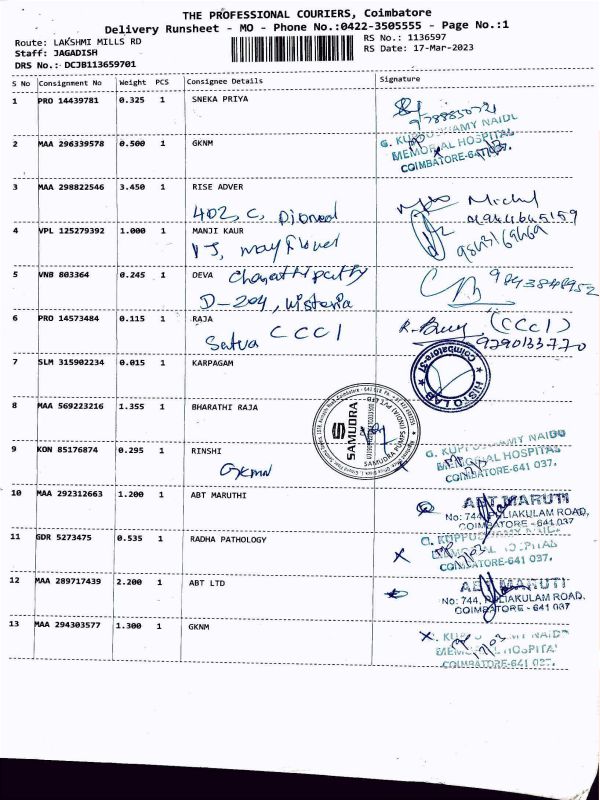 THE PROFESSIONAL COURIERS, Coimbatore
Delivery Runsheet - MO - Phone No.:0422-3505555 - Page No.:1
Route: LAKSHMI MILLS RD
RS No.: 1136597
Staff: JAGADISH
RS Date: 17-Mar-2023
DRS No.: DCJB113659701
S No Consignment No Weight PCS Consignee Details Signature
1 PRO 14439781 0.325 1 SNEKA PRIYA
G. KUPPUSWAMY NAIDU
MEMORIAL HOSPITAL
COIMBATORE-641 037.
2 MAA 296339578 0.500 1 GKNM
3 MAA 298822546 3.450 1 RISE ADVER
402, C, Diamond
4 VPL 125279392 1.000 1 MANJI KAUR
Mayflower
5 VNB 803364 0.245 1 DEVA
D-204, Wisteria
9843848952
6 PRO 14573484 0.115 1 RAJA
Satva CCCI
(CCCI)
9290133770
7 SLM 315902234 0.015 1 KARPAGAM
HISTO LAB
Coimbatore-37
8 MAA 569223216 1.355 1 BHARATHI RAJA
SAMUDRA
SAMUDRA PUMPS (INDIA) PVT LTD
9 KON 85176874 0.295 1 RINSHI
GKNM
G. KUPPUSWAMY NAIDU
MEMORIAL HOSPITAL
COIMBATORE-641 037.
10 MAA 292312663 1.200 1 ABT MARUTHI
ABT MARUTI
No: 744, PULIAKULAM ROAD,
COIMBATORE - 641 037
11 GDR 5273475 0.535 1 RADHA PATHOLOGY
G. KUPPUSWAMY NAIDU
MEMORIAL HOSPITAL
COIMBATORE-641 037.
12 MAA 289717439 2.200 1 ABT LTD
ABT MARUTI
No: 744, PULIAKULAM ROAD,
COIMBATORE - 641 037
13 MAA 294303577 1.300 1 GKNM
G. KUPPUSWAMY NAIDU
MEMORIAL HOSPITAL
COIMBATORE-641 037.